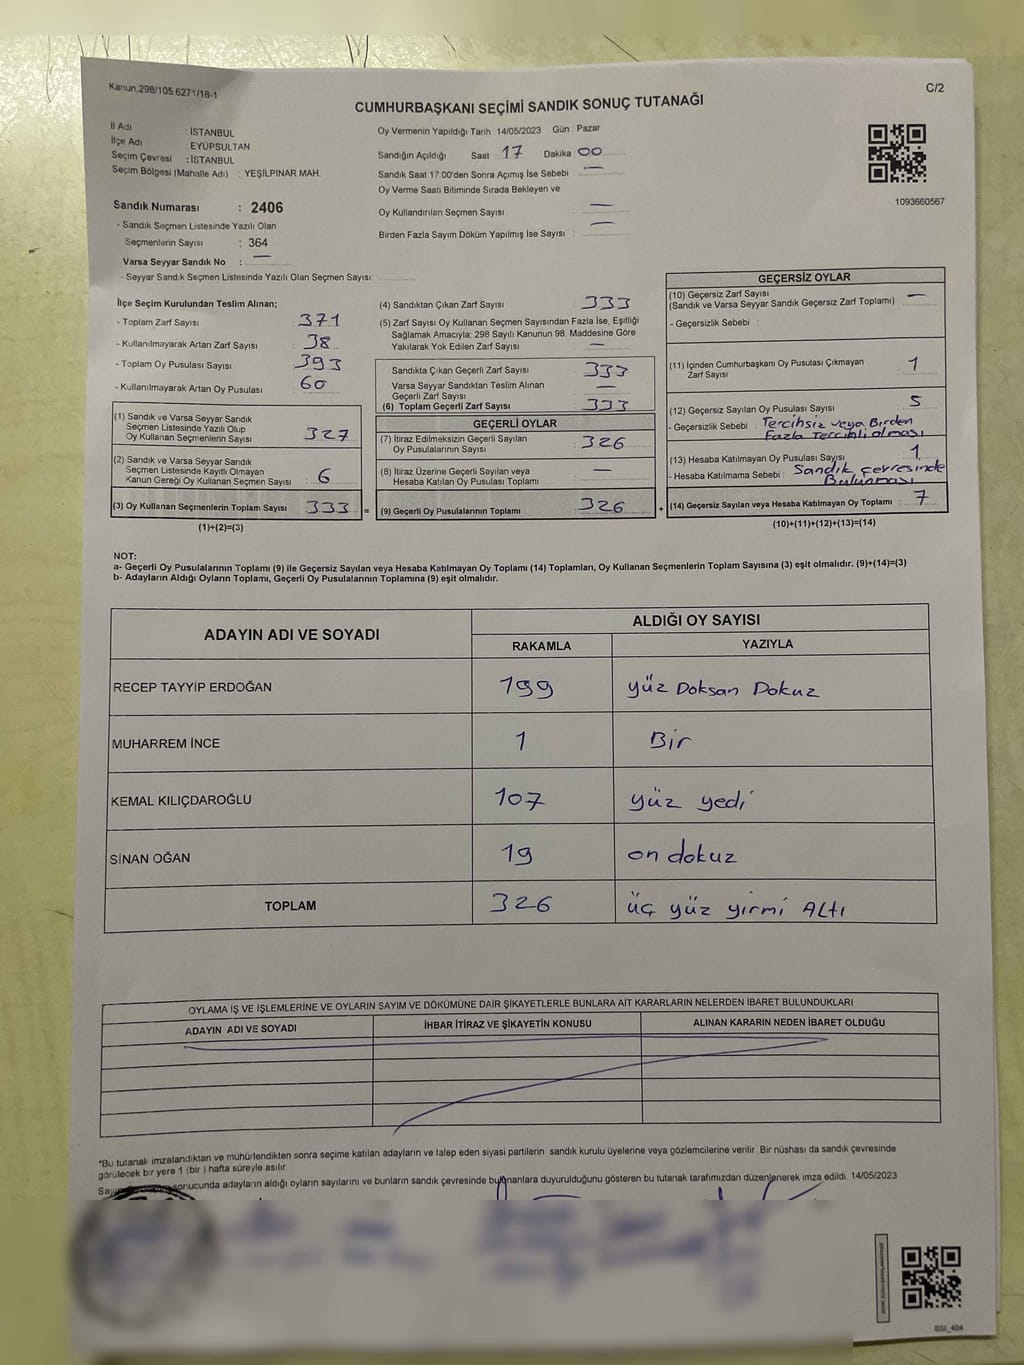 Kanun,298/105,6271/18-1
C/2
CUMHURBAŞKANI SEÇİMİ SANDIK SONUÇ TUTANAĞI
İl Adı : İSTANBUL
İlçe Adı : EYÜPSULTAN
Seçim Çevresi : İSTANBUL
Seçim Bölgesi (Mahalle Adı) : YEŞİLPINAR MAH.
Sandık Numarası : 2406
- Sandık Seçmen Listesinde Yazılı Olan
Seçmenlerin Sayısı : 364
Varsa Seyyar Sandık No : —
- Seyyar Sandık Seçmen Listesinde Yazılı Olan Seçmen Sayısı:
Oy Vermenin Yapıldığı Tarih : 14/05/2023 Gün : Pazar
Sandığın Açıldığı Saat 17 Dakika 00
Sandık Saat 17:00'den Sonra Açılmış İse Sebebi : —
Oy Verme Saati Bitiminde Sırada Bekleyen ve
Oy Kullandırılan Seçmen Sayısı : —
Birden Fazla Sayım Döküm Yapılmış İse Sayısı : —
1093660567
İlçe Seçim Kurulundan Teslim Alınan;
- Toplam Zarf Sayısı : 371
- Kullanılmayarak Artan Zarf Sayısı : 38
- Toplam Oy Pusulası Sayısı : 393
- Kullanılmayarak Artan Oy Pusulası : 60
(1) Sandık ve Varsa Seyyar Sandık
Seçmen Listesinde Yazılı Olup
Oy Kullanan Seçmenlerin Sayısı : 327
(2) Sandık ve Varsa Seyyar Sandık
Seçmen Listesinde Kayıtlı Olmayan
Kanun Gereği Oy Kullanan Seçmen Sayısı : 6
(3) Oy Kullanan Seçmenlerin Toplam Sayısı : 333 =
(1)+(2)=(3)
(4) Sandıktan Çıkan Zarf Sayısı : 333
(5) Zarf Sayısı Oy Kullanan Seçmen Sayısından Fazla İse, Eşitliği
Sağlamak Amacıyla; 298 Sayılı Kanunun 98. Maddesine Göre
Yakılarak Yok Edilen Zarf Sayısı : —
Sandıkta Çıkan Geçerli Zarf Sayısı : 333
Varsa Seyyar Sandıktan Teslim Alınan
Geçerli Zarf Sayısı : —
(6) Toplam Geçerli Zarf Sayısı : 333
GEÇERLİ OYLAR
(7) İtiraz Edilmeksizin Geçerli Sayılan
Oy Pusulalarının Sayısı : 326
(8) İtiraz Üzerine Geçerli Sayılan veya
Hesaba Katılan Oy Pusulası Toplamı : —
(9) Geçerli Oy Pusulalarının Toplamı : 326 +
GEÇERSİZ OYLAR
(10) Geçersiz Zarf Sayısı : —
(Sandık ve Varsa Seyyar Sandık Geçersiz Zarf Toplamı)
- Geçersizlik Sebebi :
(11) İçinden Cumhurbaşkanı Oy Pusulası Çıkmayan
Zarf Sayısı : 1
(12) Geçersiz Sayılan Oy Pusulası Sayısı : 5
- Geçersizlik Sebebi : Tercihsiz veya Birden
Fazla Tercihli olması
(13) Hesaba Katılmayan Oy Pusulası Sayısı : 1
- Hesaba Katılmama Sebebi : Sandık çevresinde
Bulunması
(14) Geçersiz Sayılan veya Hesaba Katılmayan Oy Toplamı : 7
(10)+(11)+(12)+(13)=(14)
NOT:
a- Geçerli Oy Pusulalarının Toplamı (9) ile Geçersiz Sayılan veya Hesaba Katılmayan Oy Toplamı (14) Toplamları, Oy Kullanan Seçmenlerin Toplam Sayısına (3) eşit olmalıdır. (9)+(14)=(3)
b- Adayların Aldığı Oyların Toplamı, Geçerli Oy Pusulalarının Toplamına (9) eşit olmalıdır.
ADAYIN ADI VE SOYADI
ALDIĞI OY SAYISI
RAKAMLA YAZIYLA
RECEP TAYYİP ERDOĞAN 199 yüz Doksan Dokuz
MUHARREM İNCE 1 Bir
KEMAL KILIÇDAROĞLU 107 yüz yedi
SİNAN OĞAN 19 on dokuz
TOPLAM 326 üç yüz yirmi Altı
OYLAMA İŞ VE İŞLEMLERİNE VE OYLARIN SAYIM VE DÖKÜMÜNE DAİR ŞİKAYETLERLE BUNLARA AİT KARARLARIN NELERDEN İBARET BULUNDUKLARI
ADAYIN ADI VE SOYADI İHBAR İTİRAZ VE ŞİKAYETİN KONUSU ALINAN KARARIN NEDEN İBARET OLDUĞU
*Bu tutanak imzalandıktan ve mühürlendikten sonra seçime katılan adayların ve talep eden siyasi partilerin sandık kurulu üyelerine veya gözlemcilerine verilir. Bir nüshası da sandık çevresinde
görülecek bir yere 1 (bir ) hafta süreyle asılır.
sonucunda adayların aldığı oyların sayılarını ve bunların sandık çevresinde bulunanlara duyurulduğunu gösteren bu tutanak tarafımızdan düzenlenerek imza edildi. 14/05/2023